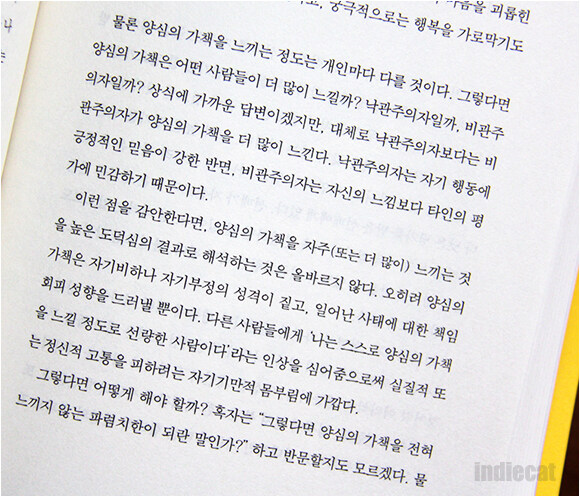 고, 궁극적으로는 행복을 가로막기도
물론 양심의 가책을 느끼는 정도는 개인마다 다를 것이다. 그렇다면
양심의 가책은 어떤 사람들이 더 많이 느낄까? 낙관주의자일까, 비관주
의자일까? 상식에 가까운 답변이겠지만, 대체로 낙관주의자보다는 비
관주의자가 양심의 가책을 더 많이 느낀다. 낙관주의자는 자기 행동에
긍정적인 믿음이 강한 반면, 비관주의자는 자신의 느낌보다 타인의 평
가에 민감하기 때문이다.
이런 점을 감안한다면, 양심의 가책을 자주(또는 더 많이) 느끼는 것
을 높은 도덕심의 결과로 해석하는 것은 올바르지 않다. 오히려 양심의
가책은 자기비하나 자기부정의 성격이 짙고, 일어난 사태에 대한 책임
회피 성향을 드러낼 뿐이다. 다른 사람들에게 ‘나는 스스로 양심의 가책
을 느낄 정도로 선량한 사람이다’라는 인상을 심어줌으로써 실질적 또
는 정신적 고통을 피하려는 자기기만적 몸부림에 가깝다.
그렇다면 어떻게 해야 할까? 혹자는 “그렇다면 양심의 가책을 전혀
느끼지 않는 파렴치한이 되란 말인가?” 하고 반문할지도 모르겠다. 물
indiecat